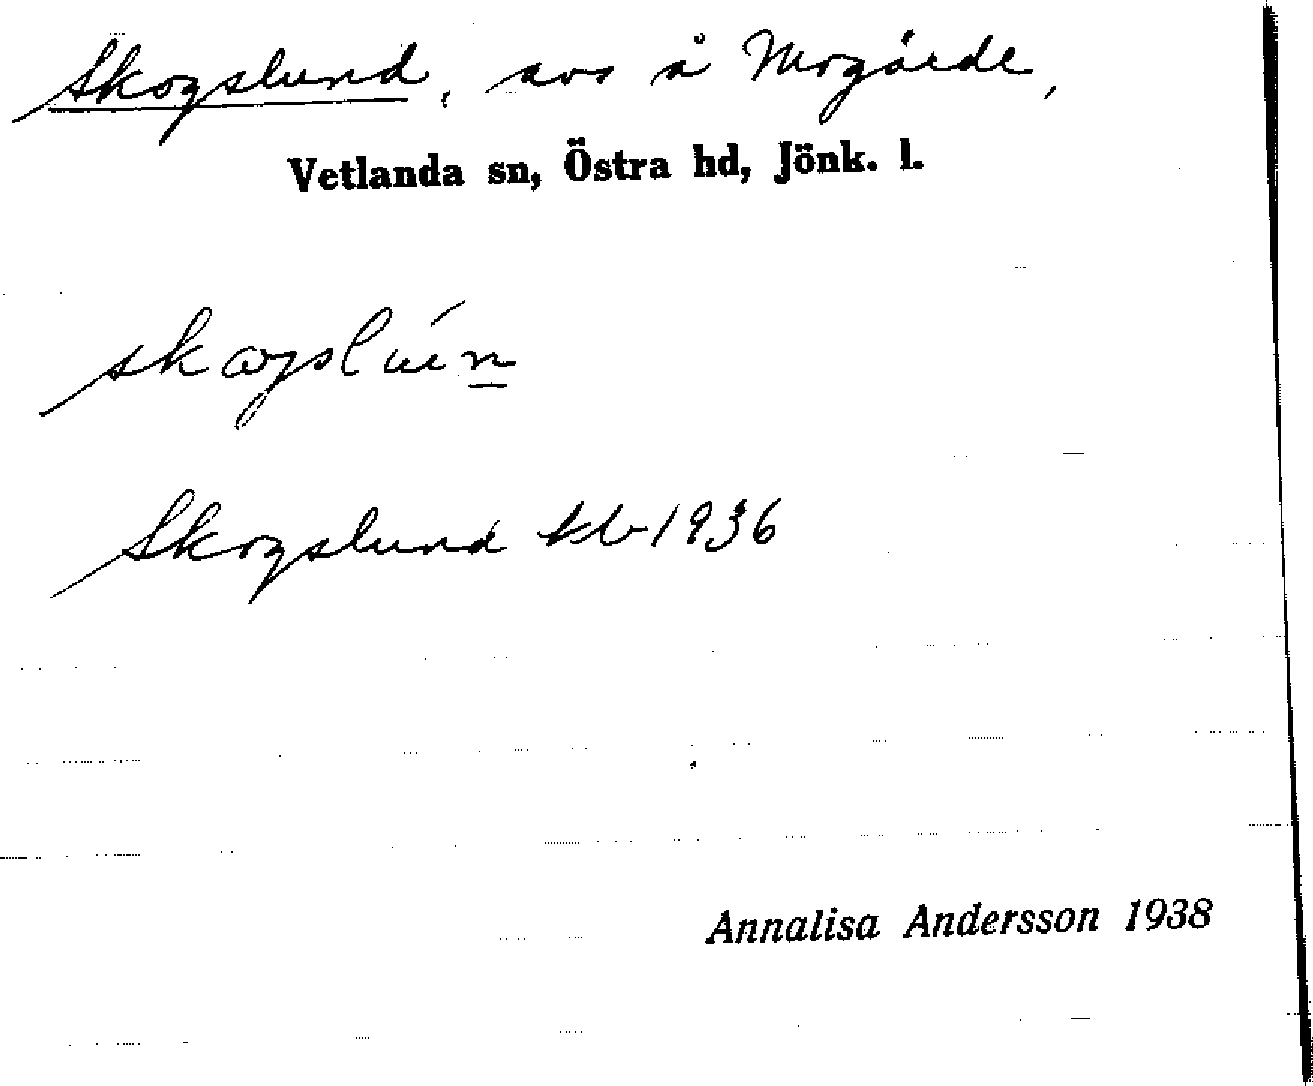 Skogslund, avs å Mogärde,
Vetlanda sn, Östra hd, Jönk. l.
Skogslund kb 1936
Annalisa Andersson 1938